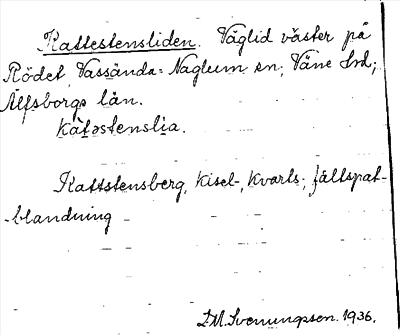 Kattestensliden. Väglid väster på
Rödet, Vassända-Naglum sn; Väne hd;
Älfsborgs län.
kàtəstenslia.
Kattstensberg, kisel-, kvarts-, fältspat-
blandning
D.M. Svenungsson. 1936.